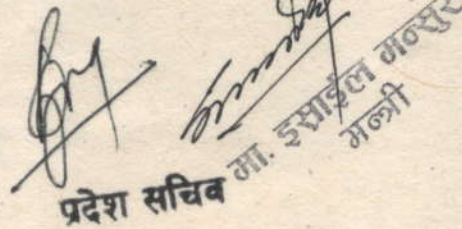 प्रदेश सचिव
मा. इस्राईल मन्सुर
मन्त्री